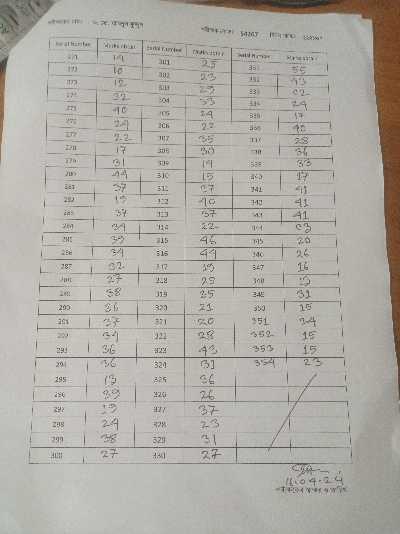 পরীক্ষকের নাম : মো. আবদুল কুদ্দুস
পরীক্ষক কোড: 54267
Serial Number Marks obtain Serial Number Marks obtain Serial Number Marks obtain
271 19 301 25 331 55
272 10 302 23 332 43
273 12 303 29 333 02
274 32 304 33 334 29
275 40 305 24 335 17
276 24 306 22 336 40
277 22 307 35 337 28
278 17 308 30 338 36
279 31 309 19 339 33
280 44 310 15 340 17
281 37 311 27 341 41
282 19 312 40 342 41
283 37 313 37 343 41
284 34 314 22 344 03
285 39 315 46 345 20
286 34 316 44 346 26
287 32 317 19 347 16
288 27 318 25 348 13
289 38 319 25 349 31
290 36 320 21 350 15
291 37 321 20 351 34
292 34 322 28 352 15
293 36 323 43 353 15
294 36 324 31 354 23
295 13 325 36
296 39 326 26
297 29 327 37
298 24 328 23
299 38 329 31
300 27 330 27
11.04.24